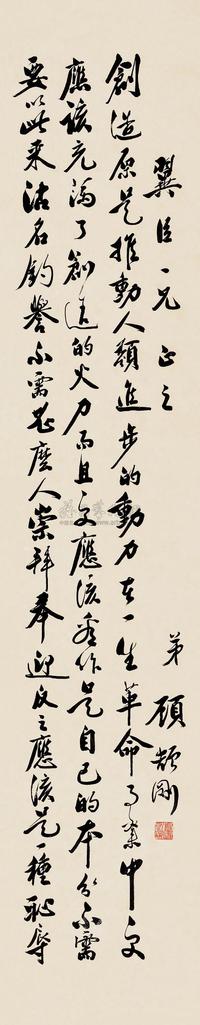 翼臣一兄正之
創造原是推動人類進步的動力在一生革命事業中更
應該充滿了創造的火力而且更應該看作是自己的本分不需
要以此來沽名釣譽不需甚麼人崇拜奉迎反之應該是一種恥辱
弟顧頡剛